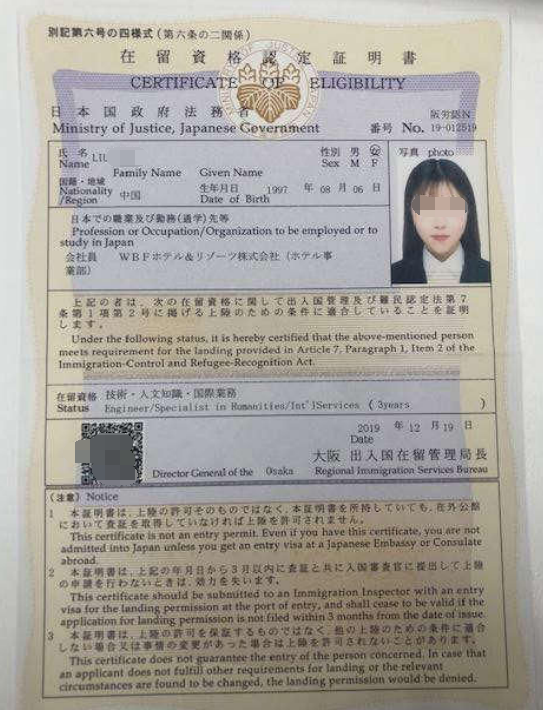 別記第六号の四様式(第六条の二関係)
在留資格認定証明書
CERTIFICATE OF ELIGIBILITY
日本国政府法務省
阪労認N
Ministry of Justice, Japanese Government
番号 No. 19-012519
氏名 LIU
性別 男 女
写真 photo
Name
Family Name Given Name
Sex M F
国籍・地域
Nationality
/Region
中国
生年月日 1997 年 08 月 06 日
Date of Birth
日本での職業及び勤務(通学)先等
Profession or Occupation/Organization to be employed or to
study in Japan
会社員 WBFホテル&リゾーツ株式会社(ホテル事
業部)
上記の者は、次の在留資格に関して出入国管理及び難民認定法第7
条第1項第2号に掲げる上陸のための条件に適合していることを証明
します。
Under the following status, it is hereby certified that the above-mentioned person
meets requirement for the landing provided in Article 7, Paragraph 1, Item 2 of the
Immigration-Control and Refugee-Recognition Act.
在留資格 技術・人文知識・国際業務
Status Engineer/Specialist in Humanities/Int'lServices ( 3years )
2019 年 12 月 19 日
Date
大阪 出入国在留管理局長
Director General of the Osaka Regional Immigration Services Bureau
(注意) Notice
1 本証明書は、上陸の許可そのものではなく、本証明書を所持していても、在外公館
において査証を取得していなければ上陸を許可されません。
This certificate is not an entry permit. Even if you have this certificate, you are not
admitted into Japan unless you get an entry visa at a Japanese Embassy or Consulate
abroad.
2 本証明書は、上記の年月日から3月以内に査証と共に入国審査官に提出して上陸
の申請を行わないときは、効力を失います。
This certificate should be submitted to an Immigration Inspector with an entry
visa for the landing permission at the port of entry, and shall cease to be valid if the
application for landing permission is not filed within 3 months from the date of issue.
3 本証明書は、上陸の許可を保証するものではなく、他の上陸のための条件に適合
しない場合又は事情の変更があった場合は上陸を許可されないことがあります。
This certificate does not guarantee the entry of the person concerned. In case that
an applicant does not fulfill other requirements for landing or the relevant
circumstances are found to be changed, the landing permission would be denied.